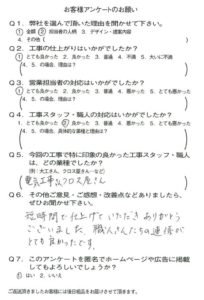 お客様アンケートのお願い
Q1. 弊社を選んで頂いた理由を聞かせて下さい。
① 金額 ② 担当者の人柄 3 デザイン・提案内容
4. その他(
Q2. 工事の仕上がりはいかがでしたか?
① とても良かった 2. 良かった 3. 普通 4. 不満 5. 大いに不満
(4、5. の場合、理由は?
Q3. 営業担当者の対応はいかがでしたか?
① とても良かった 2. 良かった 3. 普通 4. 悪かった 5. とても悪かった
(4、5. の場合、理由は?
Q4. 工事スタッフ・職人の対応はいかがでしたか?
1. とても良かった ② 良かった 3. 普通 4. 悪かった 5. とても悪かった
(4、5. の場合、具体的な業種と理由は?
Q5. 今回の工事で特に印象の良かった工事スタッフ・職人
は、どの業種でしたか?
(例:大工さん、クロス屋さん…など)
電気工事さん、クロス屋さん
Q6. その他ご意見・ご感想・改善点などありましたら、
ぜひお聞かせ下さい。
短時間で仕上げていただきありがとう
ございました。職人さんたちの連係が
とても良かったです。
Q7. このアンケートを匿名でホームページや広告に掲載
してもよろしいでしょうか?
① はい 2. いいえ
ご返送頂きましたお客様には後日粗品をお届けさせて頂きます。